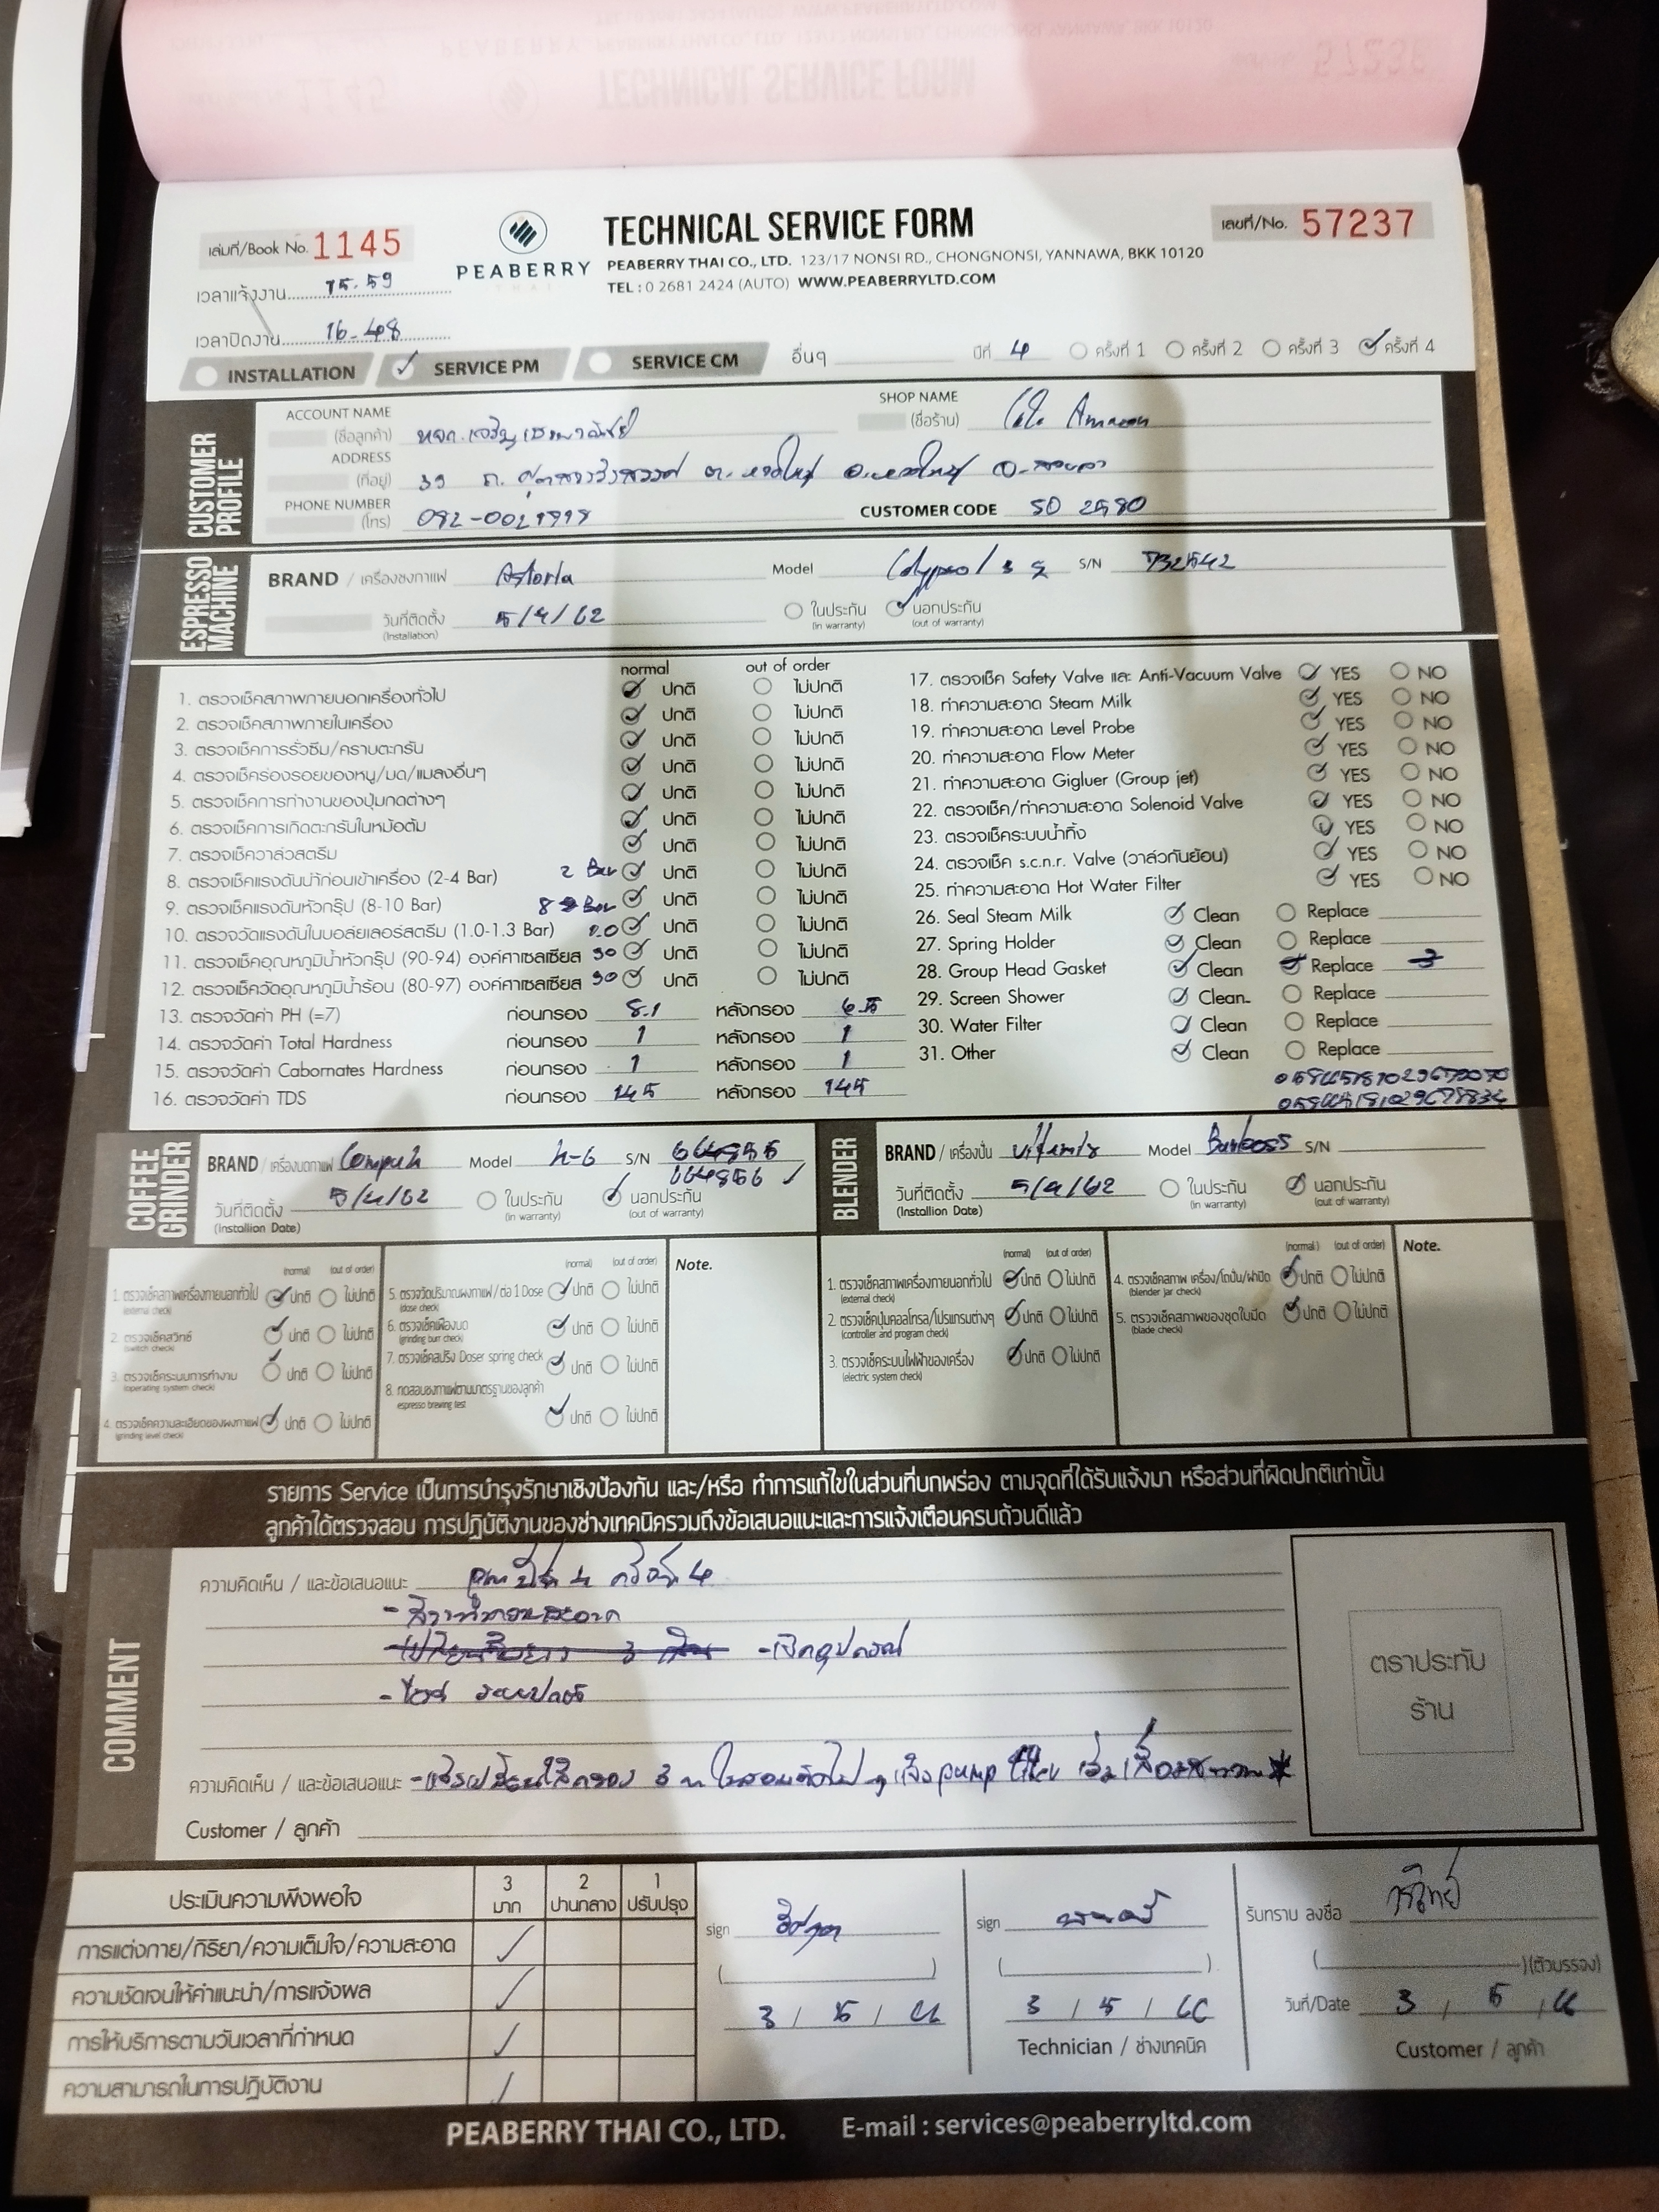 เล่มที่/Book No. 1145
PEABERRY
THAI
TECHNICAL SERVICE FORM
เลขที่/No. 57237
PEABERRY THAI CO., LTD. 123/17 NONSI RD., CHONGNONSI, YANNAWA, BKK 10120
TEL : 0 2681 2424 (AUTO) WWW.PEABERRYLTD.COM
เวลาแจ้งงาน 15.59
เวลาปิดงาน 16-48
INSTALLATION SERVICE PM SERVICE CM อื่นๆ ปีที่ 4 ครั้งที่ 1 ครั้งที่ 2 ครั้งที่ 3 ครั้งที่ 4
CUSTOMER PROFILE
ACCOUNT NAME (ชื่อลูกค้า) หจก. SHOP NAME (ชื่อร้าน) Amazon
ADDRESS (ที่อยู่) 39 ถ. ต. หาดใหญ่ อ.หาดใหญ่ จ.สงขลา
PHONE NUMBER (โทร) CUSTOMER CODE 50 2580
ESPRESSO MACHINE
BRAND / เครื่องชงกาแฟ Astoria Model S/N
วันที่ติดตั้ง (Installation) 5/4/62 ในประกัน (in warranty) นอกประกัน (out of warranty)
normal out of order
1. ตรวจเช็คสภาพภายนอกเครื่องทั่วไป ปกติ ไม่ปกติ
2. ตรวจเช็คสภาพภายในเครื่อง ปกติ ไม่ปกติ
3. ตรวจเช็คการรั่วซึม/คราบตะกรัน ปกติ ไม่ปกติ
4. ตรวจเช็คร่องรอยของหนู/มด/แมลงอื่นๆ ปกติ ไม่ปกติ
5. ตรวจเช็คการทำงานของปุ่มกดต่างๆ ปกติ ไม่ปกติ
6. ตรวจเช็คการเกิดตะกรันในหม้อต้ม ปกติ ไม่ปกติ
7. ตรวจเช็ควาล์วสตรีม ปกติ ไม่ปกติ
8. ตรวจเช็คแรงดันน้ำก่อนเข้าเครื่อง (2-4 Bar) 2 Bar ปกติ ไม่ปกติ
9. ตรวจเช็คแรงดันหัวกรุ๊ป (8-10 Bar) 8 Bar ปกติ ไม่ปกติ
10. ตรวจวัดแรงดันในบอล์ยเลอร์สตรีม (1.0-1.3 Bar) 1.0 ปกติ ไม่ปกติ
11. ตรวจเช็คอุณหภูมิน้ำหัวกรุ๊ป (90-94) องศาเซลเซียส 90 ปกติ ไม่ปกติ
12. ตรวจเช็ควัดอุณหภูมิน้ำร้อน (80-97) องศาเซลเซียส 90 ปกติ ไม่ปกติ
13. ตรวจวัดค่า PH (=7) ก่อนกรอง 8.1 หลังกรอง 6.5
14. ตรวจวัดค่า Total Hardness ก่อนกรอง 1 หลังกรอง 1
15. ตรวจวัดค่า Cabornates Hardness ก่อนกรอง 1 หลังกรอง 1
16. ตรวจวัดค่า TDS ก่อนกรอง 145 หลังกรอง 145
17. ตรวจเช็ค Safety Valve และ Anti-Vacuum Valve YES NO
18. ทำความสะอาด Steam Milk YES NO
19. ทำความสะอาด Level Probe YES NO
20. ทำความสะอาด Flow Meter YES NO
21. ทำความสะอาด Gigluer (Group jet) YES NO
22. ตรวจเช็ค/ทำความสะอาด Solenoid Valve YES NO
23. ตรวจเช็คระบบน้ำทิ้ง YES NO
24. ตรวจเช็ค s.c.n.r. Valve (วาล์วกันย้อน) YES NO
25. ทำความสะอาด Hot Water Filter YES NO
26. Seal Steam Milk Clean Replace
27. Spring Holder Clean Replace
28. Group Head Gasket Clean Replace 3
29. Screen Shower Clean Replace
30. Water Filter Clean Replace
31. Other Clean Replace
COFFEE GRINDER
BRAND / เครื่องบดกาแฟ Model h-6 S/N
664856
วันที่ติดตั้ง (Installion Date) 5/4/62 ในประกัน (in warranty) นอกประกัน (out of warranty)
BLENDER
BRAND / เครื่องปั่น Model S/N
วันที่ติดตั้ง (Installion Date) 5/4/62 ในประกัน (in warranty) นอกประกัน (out of warranty)
(normal) (out of order)
1. ตรวจเช็คสภาพเครื่องภายนอกทั่วไป (external check) ปกติ ไม่ปกติ
2. ตรวจเช็คสวิทช์ (switch check) ปกติ ไม่ปกติ
3. ตรวจเช็คระบบการทำงาน (operating system check) ปกติ ไม่ปกติ
4. ตรวจเช็คความละเอียดของผงกาแฟ (grinding level check) ปกติ ไม่ปกติ
(normal) (out of order)
5. ตรวจวัดปริมาณผงกาแฟ / ต่อ 1 Dose (dose check) ปกติ ไม่ปกติ
6. ตรวจเช็คเฟืองบด (grinding burr check) ปกติ ไม่ปกติ
7. ตรวจเช็คสปริง Doser spring check ปกติ ไม่ปกติ
8. ทดสอบชงกาแฟตามมาตรฐานของลูกค้า espresso brewing test ปกติ ไม่ปกติ
Note.
(normal) (out of order)
1. ตรวจเช็คสภาพเครื่องภายนอกทั่วไป (external check) ปกติ ไม่ปกติ
2. ตรวจเช็คปุ่มคอลโทรล/โปรแกรมต่างๆ (controller and program check) ปกติ ไม่ปกติ
3. ตรวจเช็คระบบไฟฟ้าของเครื่อง (electric system check) ปกติ ไม่ปกติ
(normal) (out of order)
4. ตรวจเช็คสภาพ เครื่อง/โถปั่น/ฝาปิด (blender jar check) ปกติ ไม่ปกติ
5. ตรวจเช็คสภาพของชุดใบมีด (blade check) ปกติ ไม่ปกติ
Note.
รายการ Service เป็นการบำรุงรักษาเชิงป้องกัน และ/หรือ ทำการแก้ไขในส่วนที่บกพร่อง ตามจุดที่ได้รับแจ้งมา หรือส่วนที่ผิดปกติเท่านั้น
ลูกค้าได้ตรวจสอบ การปฏิบัติงานของช่างเทคนิครวมถึงข้อเสนอแนะและการแจ้งเตือนครบถ้วนดีแล้ว
COMMENT
ความคิดเห็น / และข้อเสนอแนะ
ตราประทับ
ร้าน
ความคิดเห็น / และข้อเสนอแนะ
Customer / ลูกค้า
ประเมินความพึงพอใจ 3 มาก 2 ปานกลาง 1 ปรับปรุง
การแต่งกาย/กิริยา/ความเต็มใจ/ความสะอาด
ความชัดเจนให้คำแนะนำ/การแจ้งผล
การให้บริการตามวันเวลาที่กำหนด
ความสามารถในการปฏิบัติงาน
sign
3 / 5 / 66
sign
3 / 5 / 66
Technician / ช่างเทคนิค
รับทราบ ลงชื่อ
(ตัวบรรจง)
วันที่/Date 3 / 5 / 66
Customer / ลูกค้า
PEABERRY THAI CO., LTD. E-mail : services@peaberryltd.com